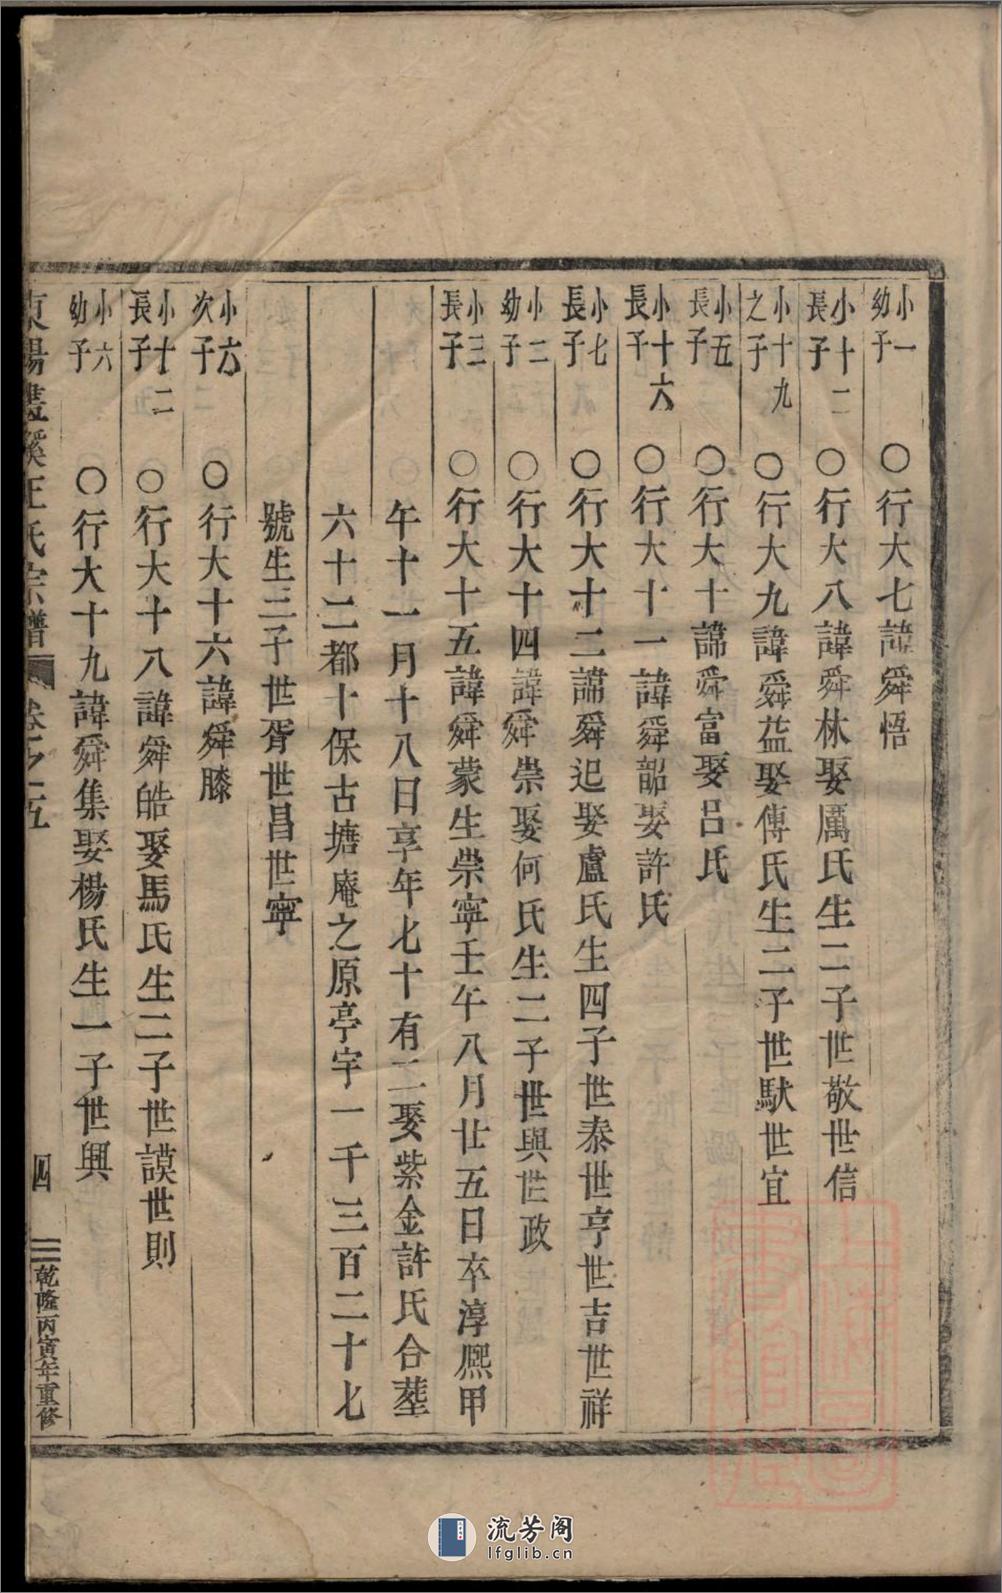 小一幼子 ○行大七諱舜悟
小十二長子 ○行大八諱舜林娶厲氏生二子世敬世信
小十九之子 ○行大九諱舜益娶傅氏生二子世馱世宜
小五長子 ○行大十諱舜富娶呂氏
小十六長子 ○行大十一諱舜韶娶許氏
小七長子 ○行大十二諱舜廵娶盧氏生四子世泰世亨世吉世祥
小二幼子 ○行大十四諱舜崇娶何氏生二子世與世政
小三長子 ○行大十五諱舜蒙生崇寧壬午八月廿五日卒淳熈甲
午十一月十八日享年七十有二娶紫金許氏合塟
六十二都十保古塘庵之原亭宇一千三百二十七
號生三子世胥世昌世寧
小六次子 ○行大十六諱舜膝
小十二長子 ○行大十八諱舜皓娶馬氏生二子世謨世則
小六幼子 ○行大十九諱舜集娶楊氏生一子世興
東陽畫溪王氏宗譜 卷之五 四 乾隆丙寅年重修
流芳阁
lfglib.cn